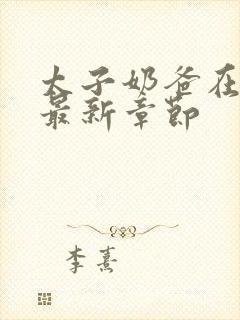 太子奶爸在
最新章节
李熹